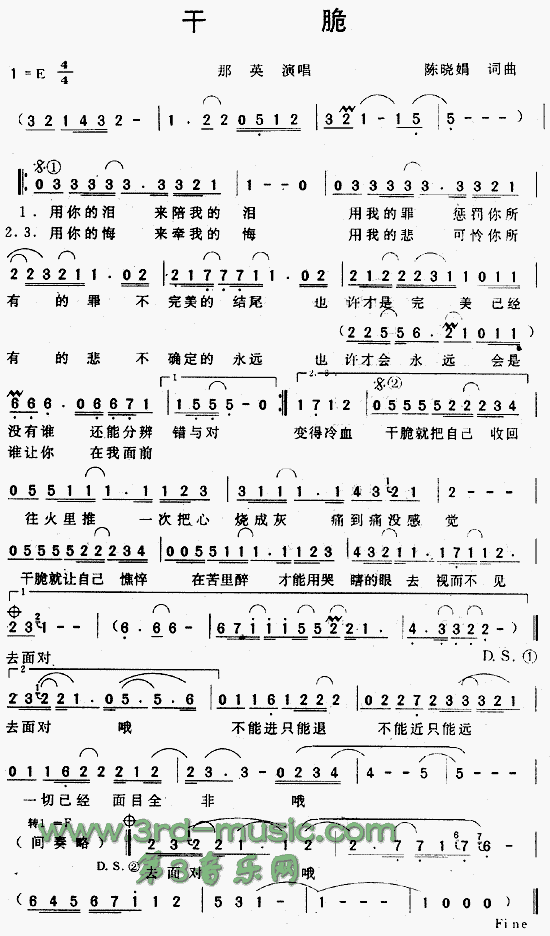 干 脆
1=E 4/4 那 英 演唱 陈晓娟 词曲
( 3 2 1 4 3 2 - | 1 . 2 2 0 5 1 2 | 3 2 1 - 1 5 | 5 - - - )
𝄋①
0 3 3 3 3 3 . 3 3 2 1 | 1 - - 0 | 0 3 3 3 3 3 . 3 3 2 1
1. 用你的泪 来陪我的 泪 用我的罪 惩罚你所
2.3. 用你的悔 来牵我的 悔 用我的悲 可怜你所
2 2 3 2 1 1 . 0 2 | 2 1 7 7 7 1 1 . 0 2 | 2 1 2 2 2 3 1 1 0 1 1
有 的 罪 不 完美的 结尾 也 许才是 完 美 已经
( 2 2 5 5 6 . 2 1 0 1 1 )
有 的 悲 不 确定的 永远 也 许才会 永 远 会是
1.
2. 3.
𝄋②
6 6 6 . 0 6 6 7 1 | 1 5 5 5 - 0 :| 1 7 1 2 | 0 5 5 5 5 2 2 2 3 4
没有谁 还能分辨 错与对 变得冷血 干脆就把自己 收回
谁让你 在我面前
0 5 5 1 1 1 . 1 1 2 3 | 3 1 1 1 . 1 4 3 2 1 | 2 - - -
往火里推 一次把心 烧成灰 痛到痛没感 觉
0 5 5 5 5 2 2 2 3 4 | 0 0 5 5 1 1 1 . 1 1 2 3 | 4 3 2 1 1 . 1 7 1 1 2 .
干脆就让自己 憔悴 在苦里醉 才能用哭 瞎的眼 去 视而不 见
1
2 3 1 - - | ( 6 . 6 6 - - | 6 7 1 1 1 5 5 2 2 1 . | 4 . 3 3 2 2 - ) :|
去面对 D.S.①
2
2 3 2 2 1 . 0 5 . 5 . 6 | 0 1 1 6 1 2 2 2 | 0 2 2 7 2 3 3 3
去面对 哦 不能进只能退 不能近只能远
0 1 1 6 2 2 2 1 2 | 2 3 . 3 - 0 2 3 4 | 4 - - 5 | 5 - - -
一切已经 面目全 非 哦
转1=F
www.3rd-music.com
( 间奏略 ) 2 3 2 2 1 . 1 2 . | 2 . 7 7 1 7 1
D.S.② 去面对 哦
第3音乐网
( 6 4 5 6 7 1 2 | 5 - - - | 5 - - - | 1 0 0 0 )
Fine